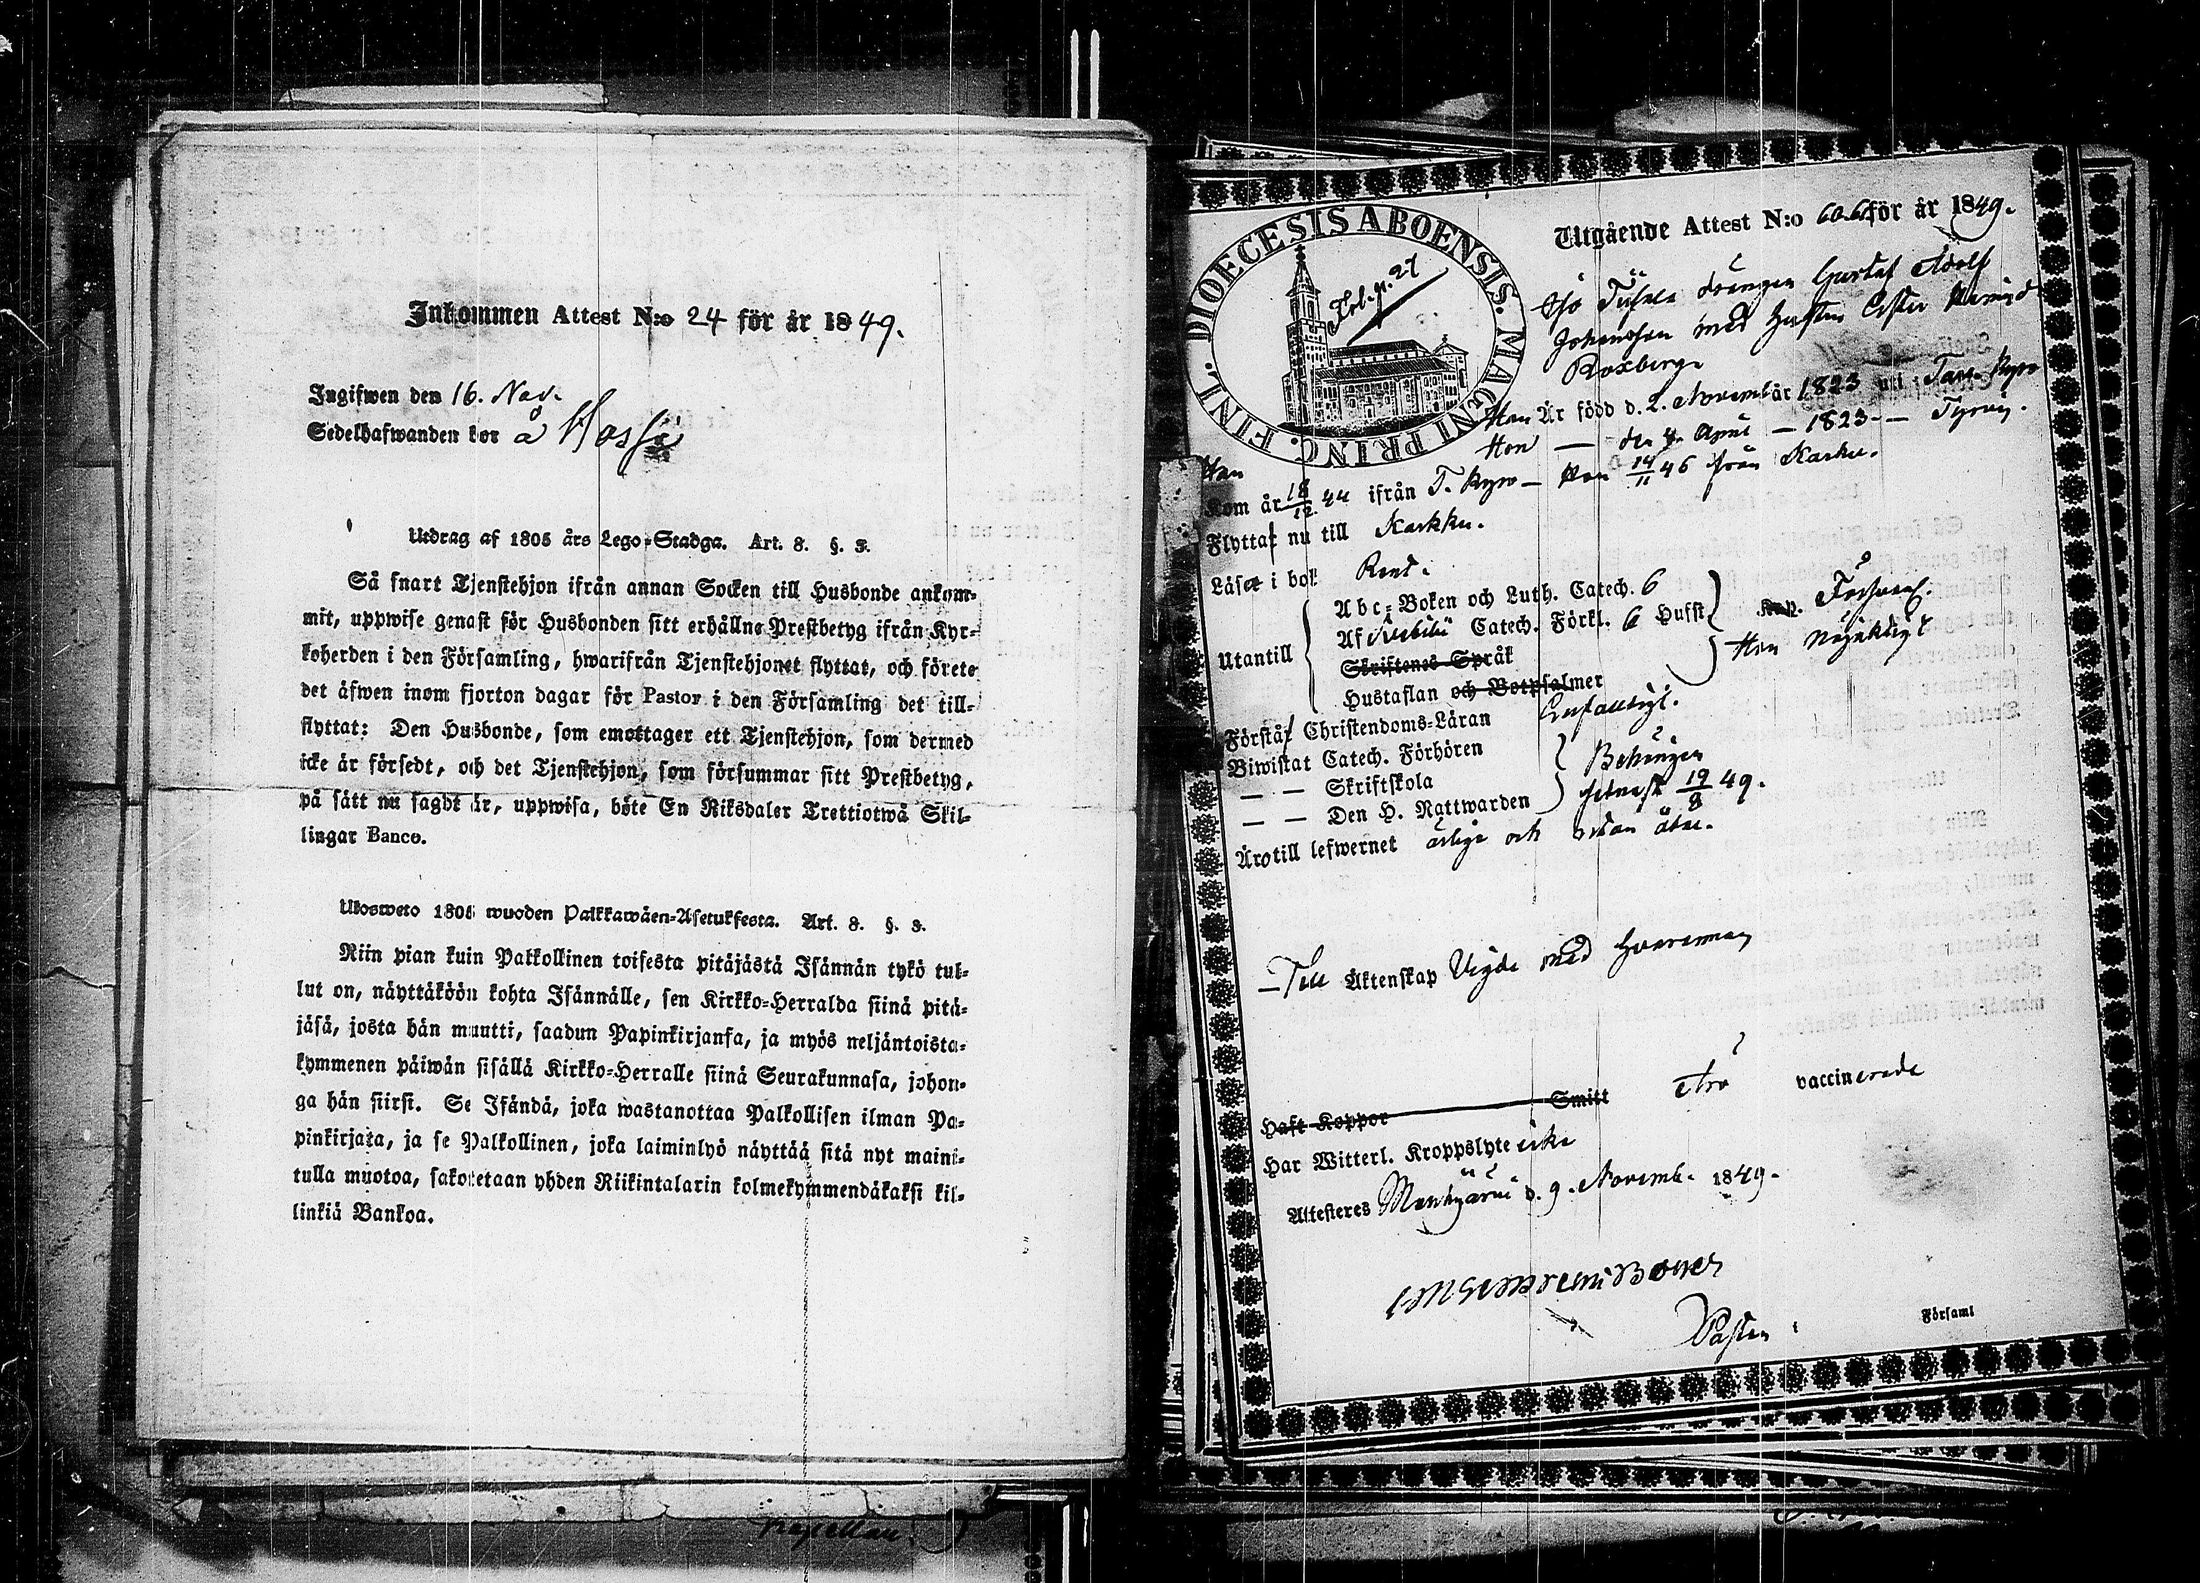 Inkommen Attest N:o 24 för år 1849.
Ingifwen den 16. Nov.
Sedelhafwanden bor å
Utdrag af 1805 års Lego-Stadga. Art. 8. §. 3.
Så snart Tjenstehjon ifrån annan Socken till Husbonde ankom-
mit, uppwise genast för Husbonden sitt erhållne Prestbetyg ifrån Kyr-
koherden i den Församling, hwarifrån Tjenstehjonet flyttat, och förete
det äfwen inom fjorton dagar för Pastor i den Församling det till-
flyttat: Den Husbonde, som emottager ett Tjenstehjon, som dermed
icke är försedt, och det Tjenstehjon, som försummar sitt Prestbetyg,
på sätt nu sagdt är, uppwisa, böte En Riksdaler Trettiotwå Skil-
lingar Banco.
Ulosweto 1805 wuoden Palkkawäen-Asetuksesta. Art. 8. §. 3.
Niin pian kuin Palkollinen toisesta pitäjästä Isännän tykö tul-
lut on, näyttäköön kohta Isännälle, sen Kirkko-Herralda siinä pitä-
jäsä, josta hän muutti, saadun Papinkirjansa, ja myös neljäntoista-
kymmenen päiwän sisällä Kirkko-Herralle siinä Seurakunnasa, johon-
ga hän siirsi. Se Isändä, joka wastanottaa Palkollisen ilman Pa-
pinkirjata, ja se Palkollinen, joka laiminlyö näyttää sitä nyt maini-
tulla muotoa, sakotetaan yhden Riikintalarin kolmekymmendäkaksi kil-
linkiä Bankoa.
DIOECESIS ABOENSIS. MAGNI PRINC. FINL.
Fol. p. 27
Utgående Attest N:o för år 1849.
drängen Gustaf Adolf
Johansson med Hustru
Roxberg
Han Är född d. 2. Novemb år 1823
Hon — den 4 April — 1823 — Tyrvis.
Han
Kom år 18/12 44 ifrån T. Kyro — Hon 14/11 46 från Karku.
Flyttar nu till Karkku.
Läser i bok Rent.
Utantill
Abc-Boken och Luth. Catech. 6
Af Svebilii Catech. Förkl. 6 Hufst
Skriftenes Språk
Hustaflan och Botpsalmer
Försvarl.
Hon Nöjaktigt
Förstår Christendoms-Läran Enfaldigt.
Biwistat Catech. Förhören
— — Skriftskola
— — Den H. Nattwarden
Behörigen
senast 19/8 49.
Äro till lefwernet ärlige och utan åtal.
— Till Äktenskap Vigde med hvarannan
Haft Koppor Smitt Äro vaccinerade
Har Witterl. Kroppslyte icke
Attesteres Mouhijärvi d. 9. Novemb. 1849.
Pastor i Församl